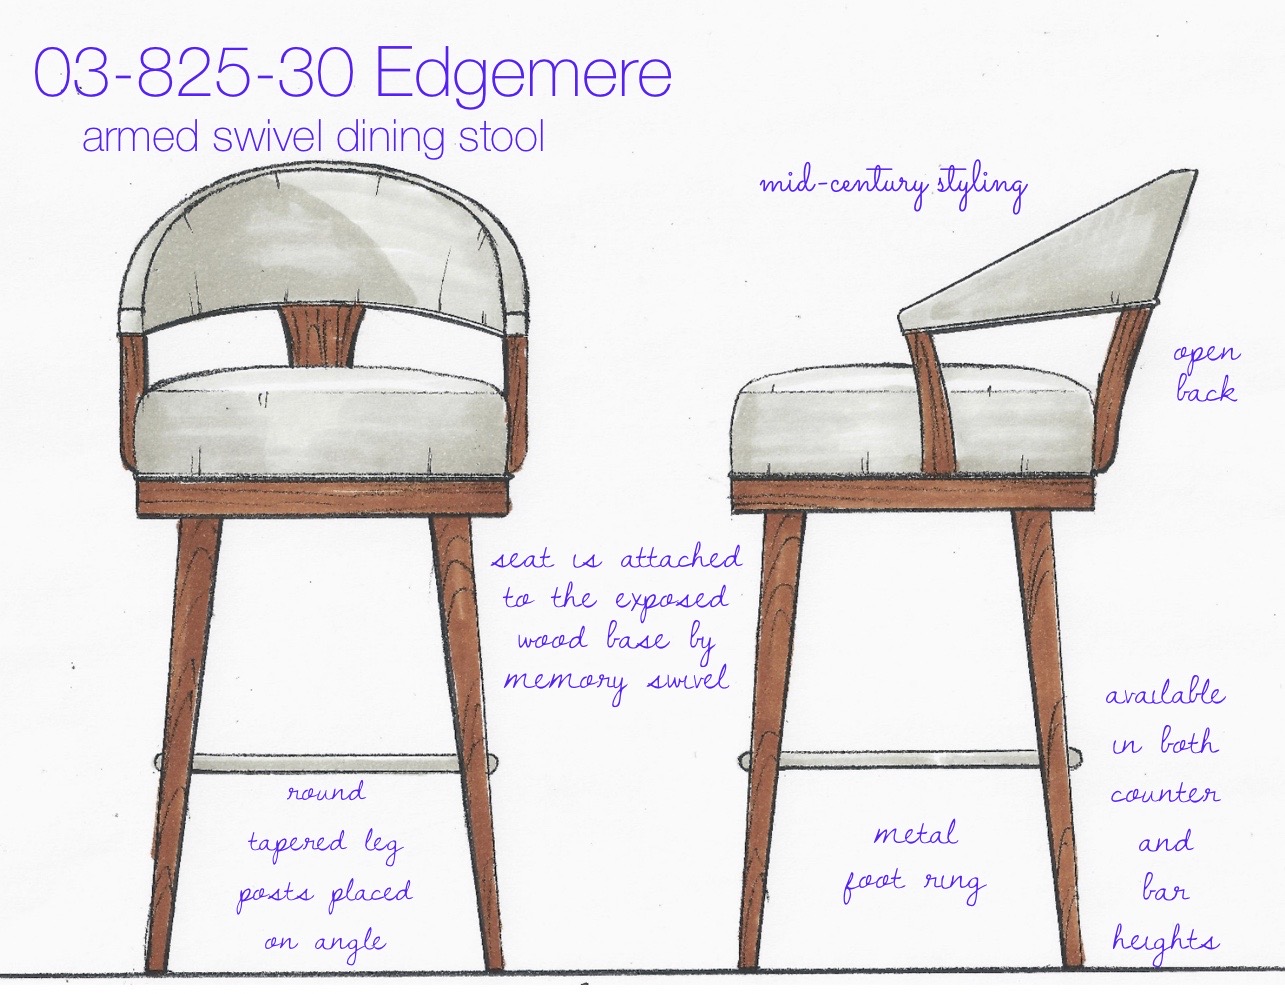 03-825-30 Edgemere
armed swivel dining stool
mid-century styling
open
back
seat is attached
to the exposed
wood base by
memory swivel
round
tapered leg
posts placed
on angle
metal
foot ring
available
in both
counter
and
bar
heights